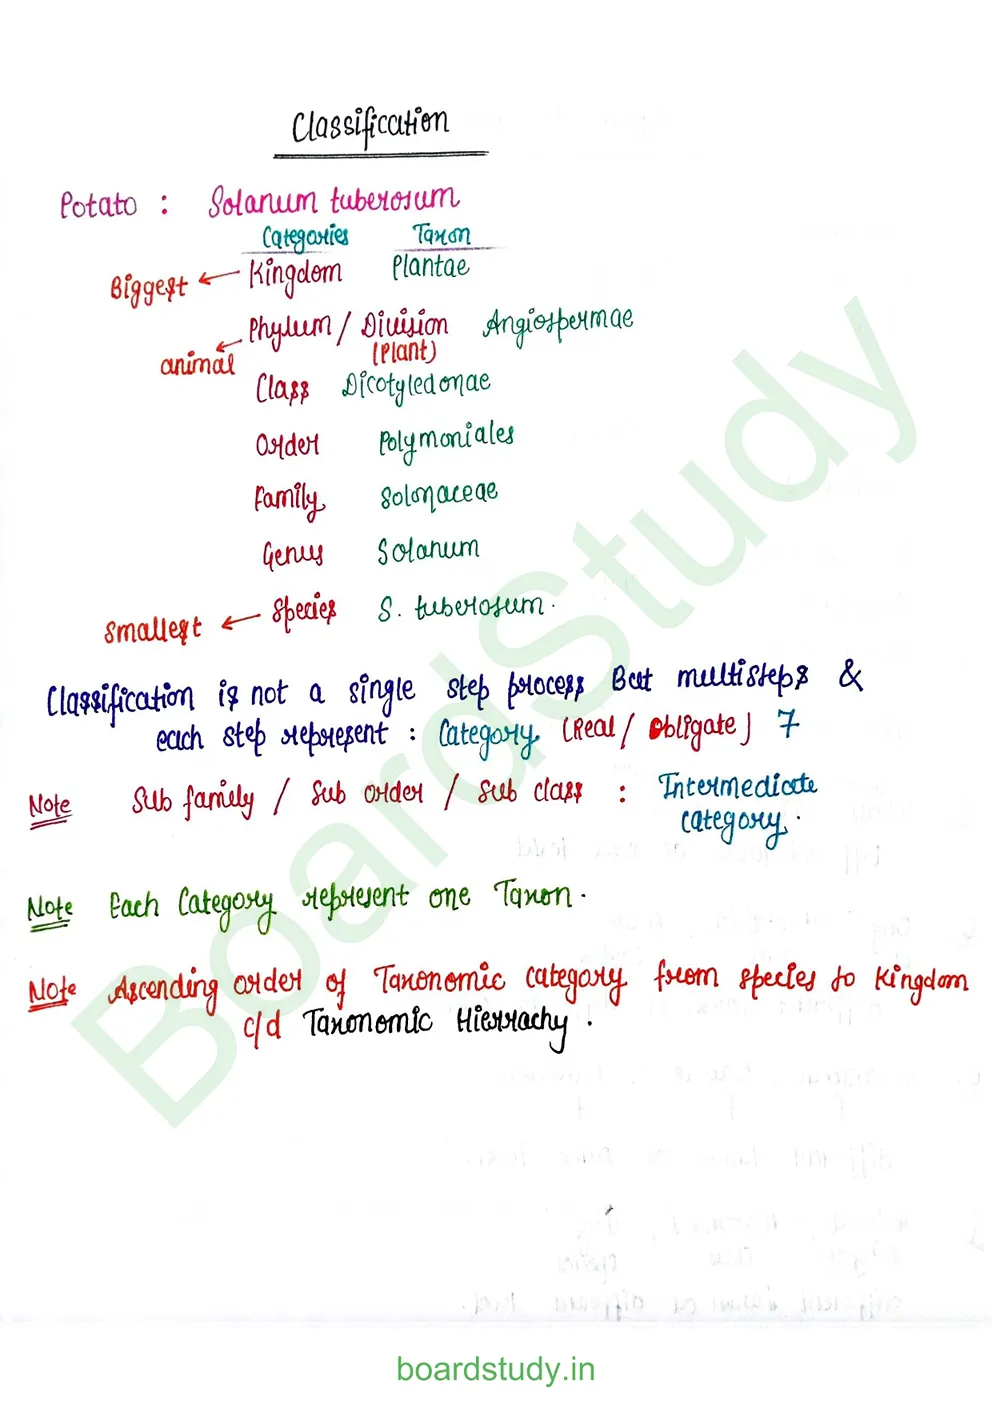 Classification
Potato : Solanum tuberosum
Categories Taxon
Biggest ← Kingdom Plantae
Phylum / Division Angiospermae
animal (Plant)
Class Dicotyledonae
Order Polymoniales
Family Solonaceae
Genus Solanum
Smallest ← Species S. tuberosum.
Classification is not a single step process But multisteps &
each step represent : Category (Real / Obligate) 7
Note Sub family / Sub order / Sub class : Intermediate
category.
Note Each Category represent one Taxon.
Note Ascending order of Taxonomic category from species to Kingdom
c/d Taxonomic Hierrachy.
BoardStudy
boardstudy.in